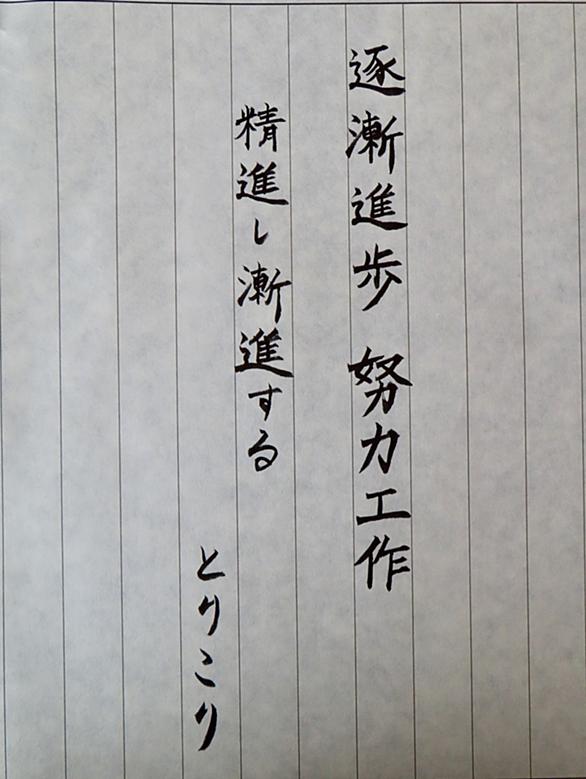 逐漸進歩 努力工作
精進し漸進する
とりこり